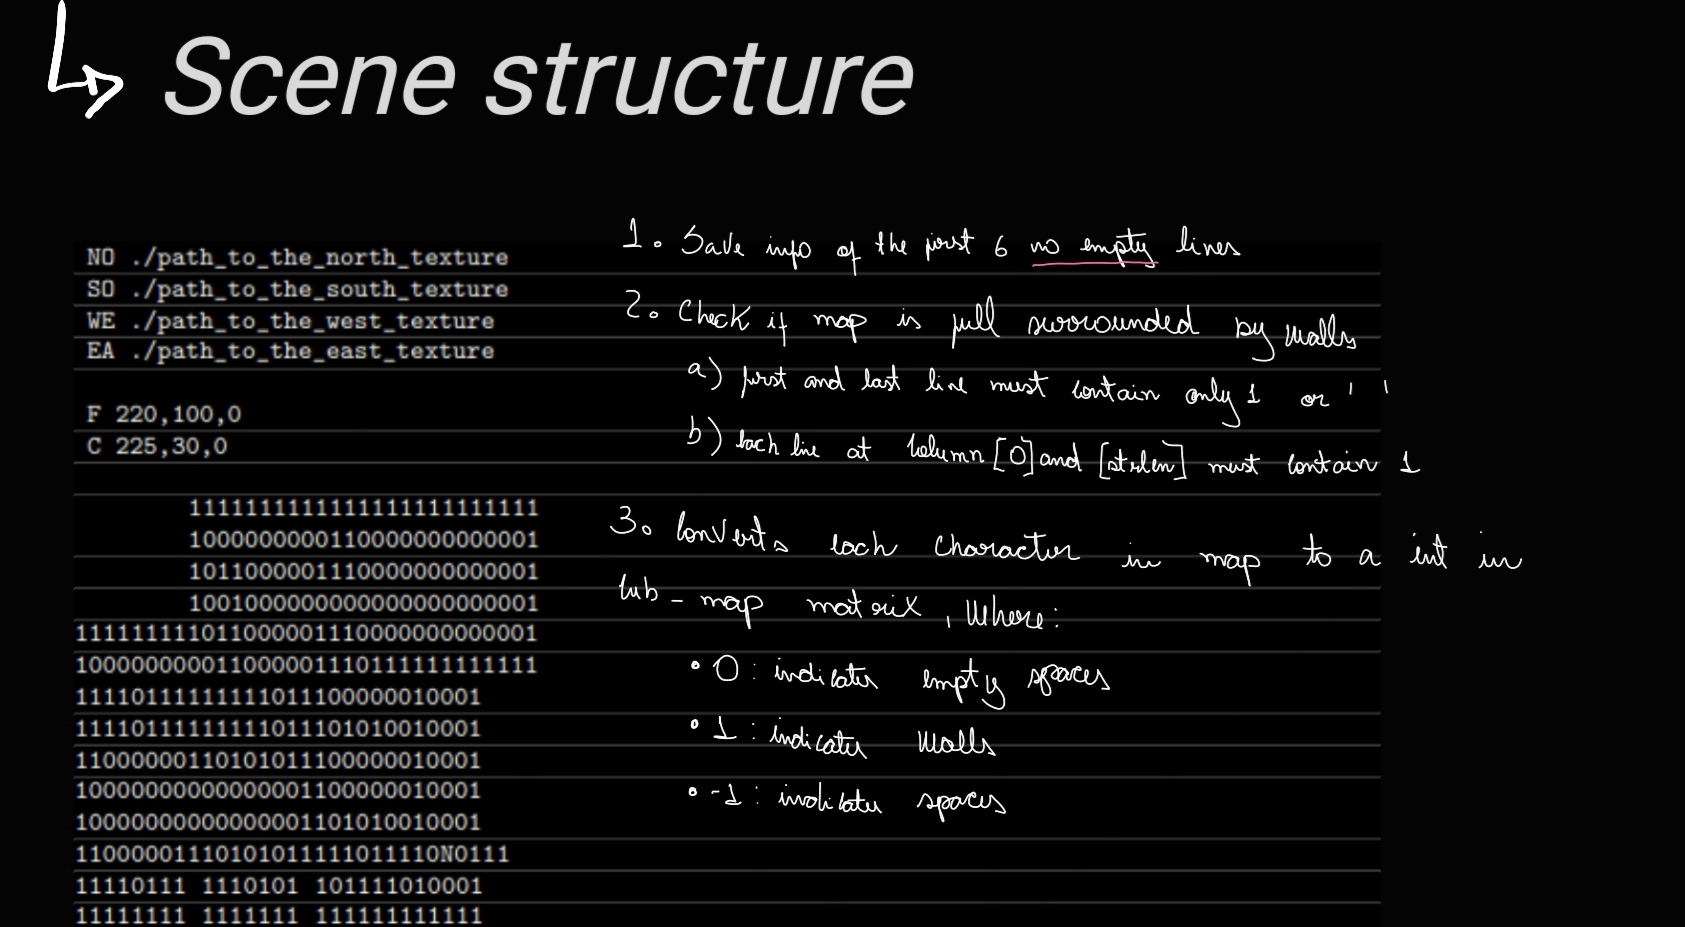 Scene structure
NO ./path_to_the_north_texture
SO ./path_to_the_south_texture
WE ./path_to_the_west_texture
EA ./path_to_the_east_texture
F 220,100,0
C 225,30,0
1111111111111111111111111
1000000000110000000000001
1011000001110000000000001
1001000000000000000000001
111111111011000001110000000000001
100000000011000001110111111111111
11110111111111011100000010001
11110111111111011101010010001
11000000110101011100000010001
10000000000000001100000010001
10000000000000001101010010001
11000001110101011111011110N0111
11110111 1110101 101111010001
11111111 1111111 111111111111
1. Save info of the first 6 no empty lines
2. Check if map is full surrounded by walls
a) first and last line must contain only 1 or ' '
b) each line at column [0] and [strlen] must contain 1
3. Converts each character in map to a int in
cub-map matrix, Where:
• 0 : indicates empty spaces
• 1 : indicates walls
• -1 : indicates spaces